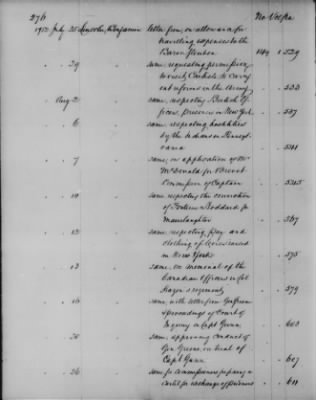 276
No. Vol. Pa
1782 July 25 Lincoln, Benjamin letter from, on allowance for
travelling expenses to the
Baron Steuben 149 1 529
" 29 same, requesting permission
to visit Carlisle to carry
out reforms in the Army " " 533
Aug 2 same, respecting British of
ficers, prisoners in New York " " 537
" 6 same, respecting hostilities
by the Indians in Pennsyl
vania " " 541
" 7 same, on application of
McDonald for Brevet
Commission of Captain " " 545
" 10 same respecting the conviction
of Goddard for
Manslaughter " " 567
" 12 same, respecting pay and
clothing of levies raised
in New York " " 575
" 13 same, on memorial of the
Canadian Officers in Col
Hazen's regiment " " 579
" 16 same, with letter from Gen Greene
& proceedings of Court of
Inquiry on Capt Gunn " " 603
" 20 same, approving conduct of
Gen Greene, on trial of
Capt Gunn " " 607
" 26 same for Commissioners to prepare a
cartel for exchange of prisoners " " 611